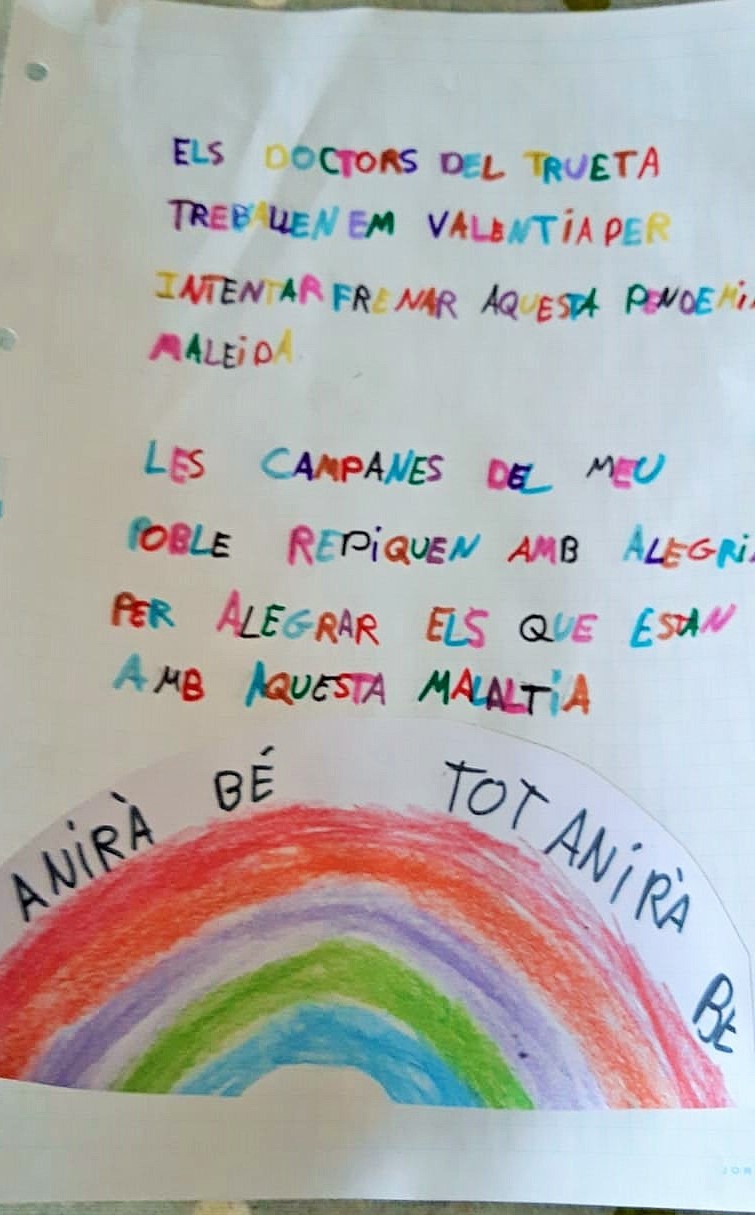 ELS DOCTORS DEL TRUETA
TREBALLEN EM VALENTIA PER
INTENTAR FRENAR AQUESTA PENDEMI
MALEIDA
LES CAMPANES DEL MEU
POBLE REPIQUEN AMB ALEGRI
PER ALEGRAR ELS QUE ESTAN
AMB AQUESTA MALALTIA
ANIRÀ BÉ TOT ANIRÀ BÉ